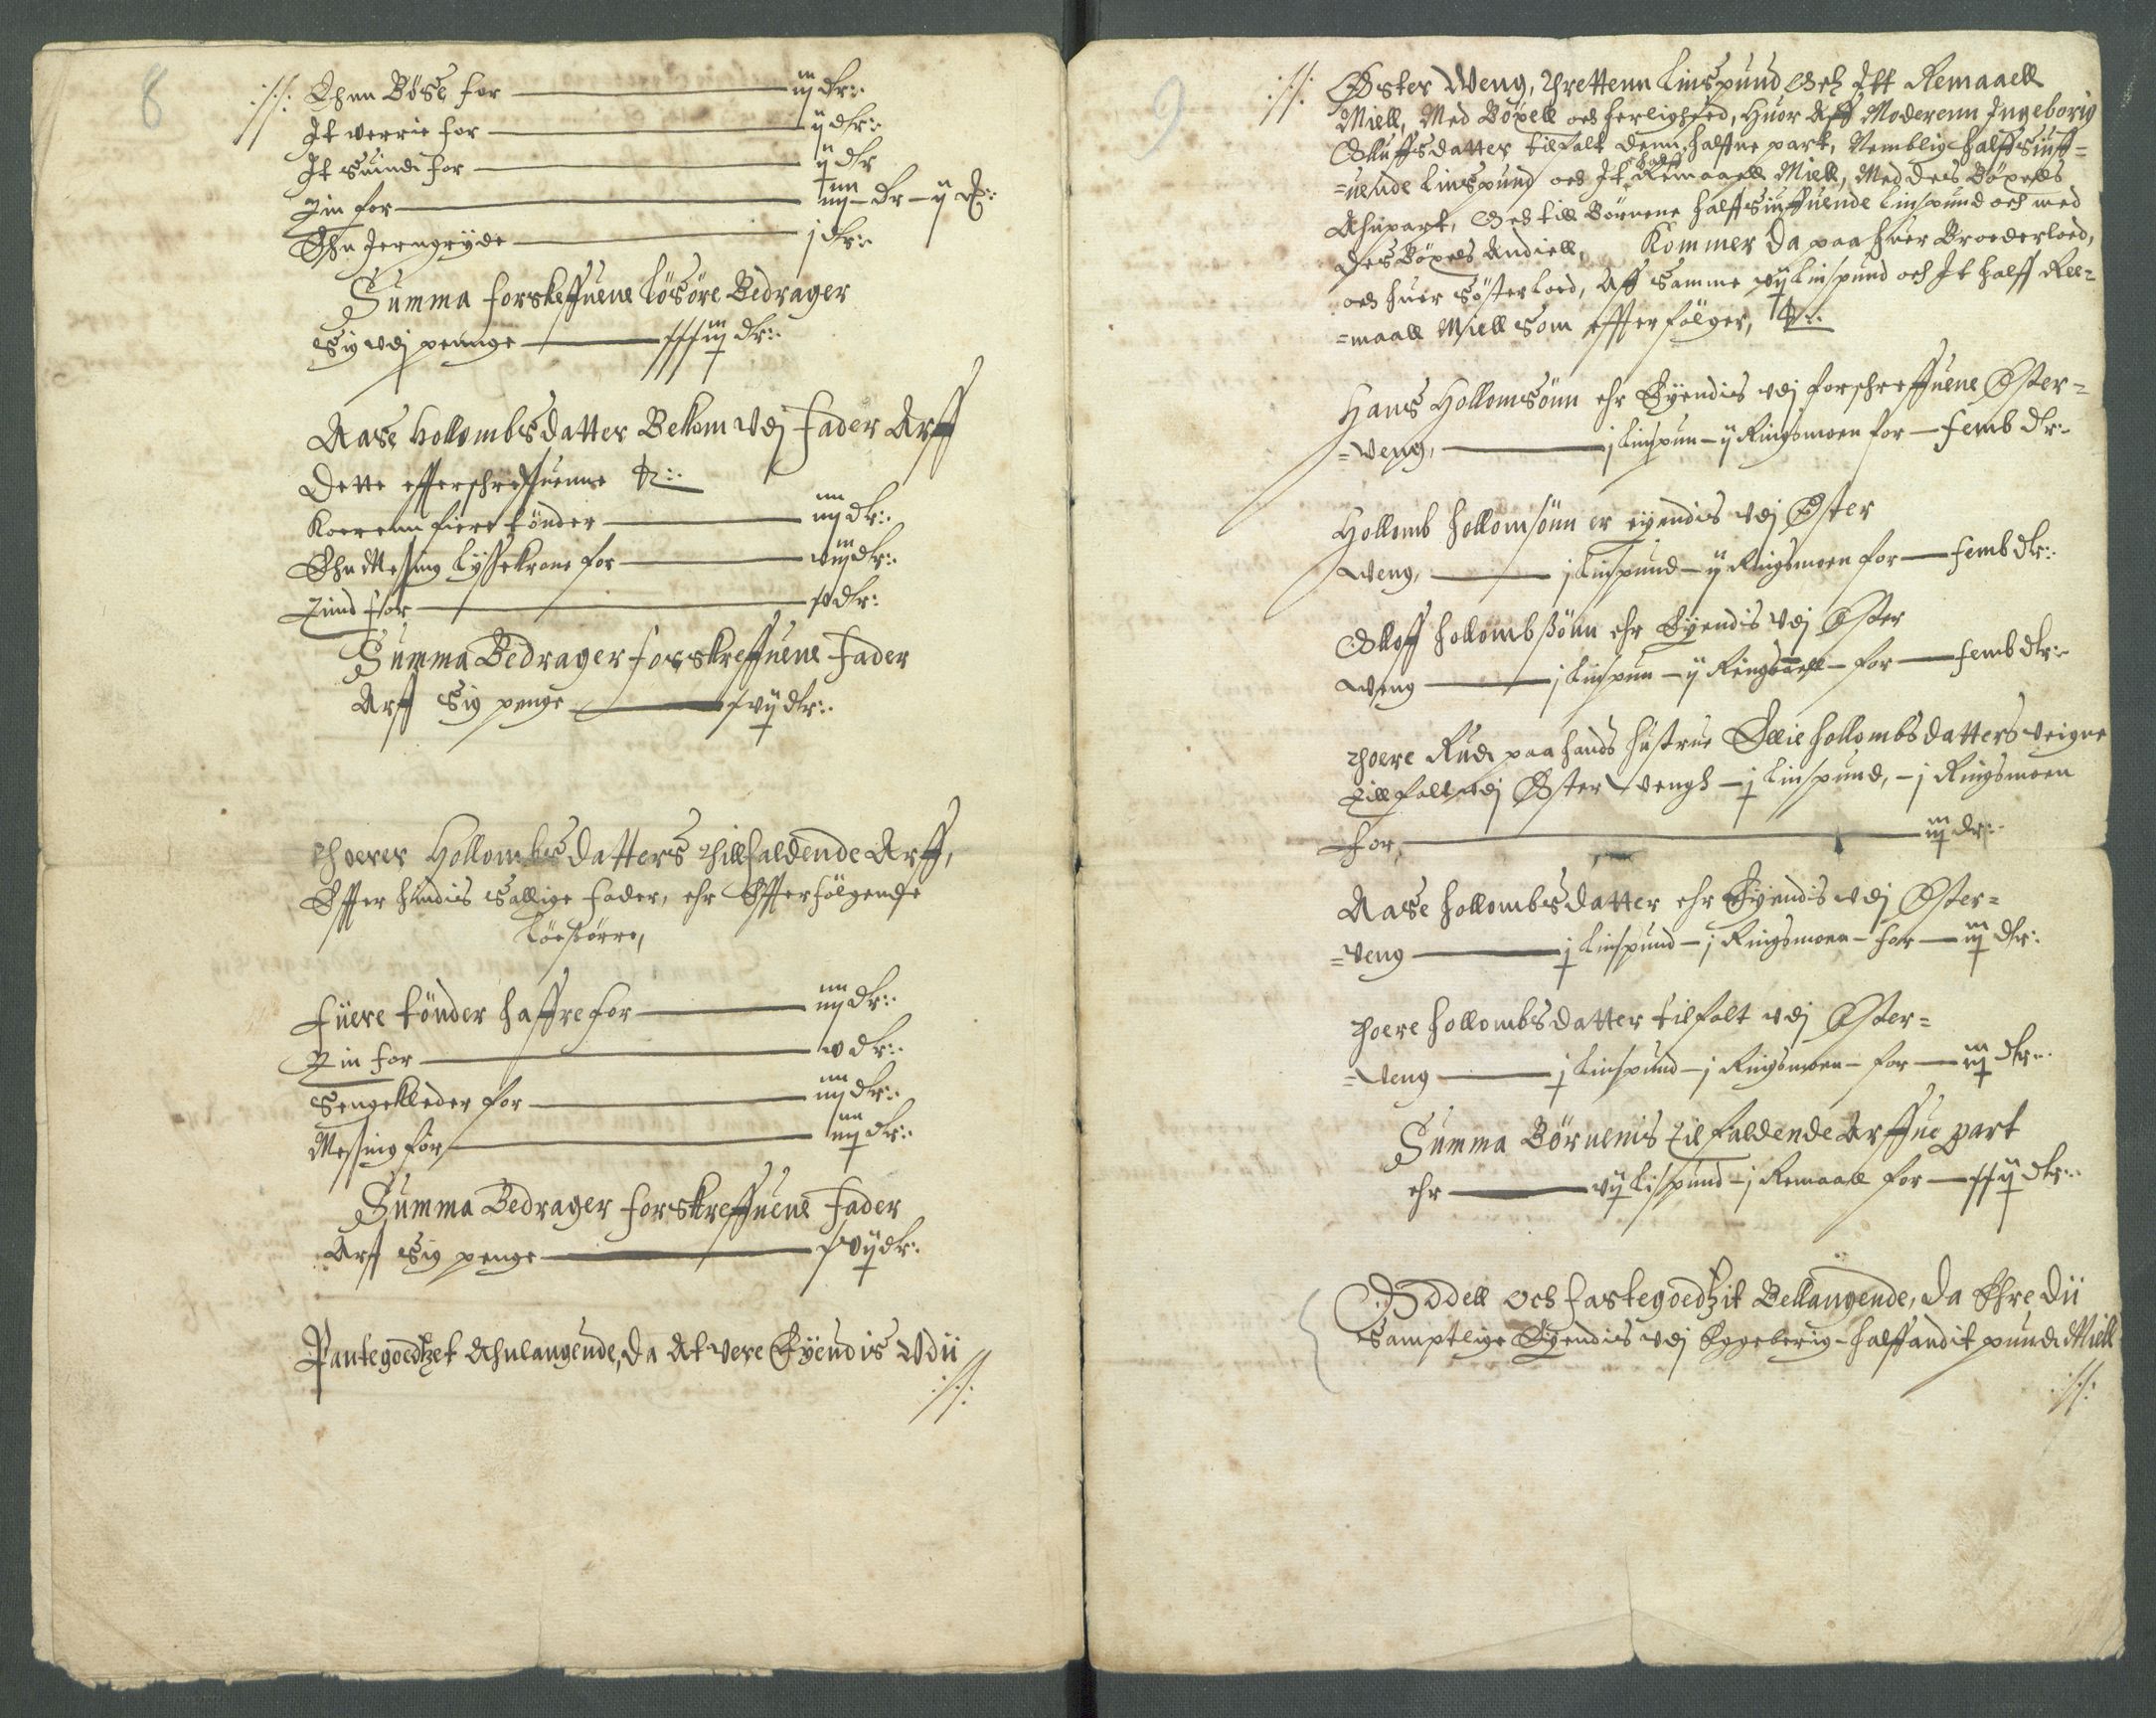 8
:/:/: Ehnn Bøse for — iij dlr:
It verrie for — ij dlr:
It suindi for — ij dlr
Tin for — iiij dlr — ij
Ehn Jerngryde — j dlr:
Summa forskreffuene Løsøre Bedrager
Sig vdj penge — xxxiij dlr:
Aase Hollombsdatter Bekom vdj Fader Arff
Dette effterschreffuenne
Koerenn fiere tønder — iiij dlr:
Ehn Messing Lyssekrone for — viij dlr:
Tind for — xv dlr:
Summa Bedrager forskreffuene Fader
Arff Sig penge — dlr:
Thoerer Hollombsdatters tillfaldende Arff,
Effter hindis Sallige Fader, ehr Effterfølgende
Løessørre,
Fiiere tønder haffre for — iiij dlr:
Tin for — v dlr:
Sengeklæder for — iiij dlr:
Messing for — iiij dlr:
Summa Bedrager forskreffuene Fader
Arff Sig penge — xvij dlr:
Pantegoedtzet Ahnlangende, da At vere Eyendis Vdii
:/:/:
9
:/:/: Øster Weng, threttenn Linspund Och Itt Remaaell
Miell, Med Bøxell och herlighed, Huor Aff Moderenn Ingeborig
Olluffsdatter tilfalt denn halffue part, Nemblig halffsiuff=
=uende Linspund och It halff Remaaell Miell, Med des Bøxels
Ahnpart, Och till Børnene halffsiuffuende Linspund och med
des Bøxels Andiell, Kommer da paa huer Broederloed,
och huer Søsterloed, Aff Samme vij Linspund och It halff Ree=
=maall Miell Som effterfølger,
Hans Hollomsønn ehr Eyendis vdj forschreffuene Øster=
=Veng, — j Linspun — ij Ringsmoen for — femb dlr:
Hollomb Hollomsønn er eyendis vdj Øster
Weng, — j Linspund — ij Ringsmoen for — femb dlr:
Olloff Hollombsønn ehr Eyendis vdj Øster
Weng — j Linspun — ij — for — femb dlr:
Thoere Rudi paa hands hustrue Ellie Hollombsdatters veigne
Tillfalt vdj Øster Vengh — j Linspund, — j Ringsmoen
for, — iij dlr:
Aase Hollombsdatter ehr Eyendis vdj Øster=
=Veng — j Linspund — j Ringsmoen — for — iij dlr:
Thoere Hollombsdatter tilfalt vdj Øster=
=Veng — j Linspund — j Ringsmoen — for — iij dlr:
Summa Børnenis tilfaldende Arffue part
ehr — vij Lispund — j Remaall for — xxij dlr:
Oddell och fastegoedtzit Bellangende, da Ehre dii
Samptlige Eyendis vdj Eggeberig — halffandit pundi Miell
:/:/: